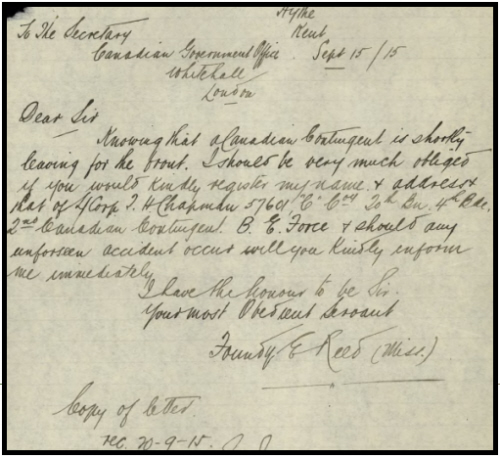 Hythe
Kent
To The Secretary
Canadian Government Office Sept 15/15
Whitehall
London
Dear Sir
Knowing that a Canadian Contingent is shortly
leaving for the front. I should be very much obliged
if you would kindly register my name & address &
that of L/Corp T. H Chapman 57601 "C" Coy 20th Bn. 4th Bde.
2nd Canadian Contingent. B. E. Force & should any
unforseen accident occur will you kindly inform
me immediately
I have the honour to be Sir.
Your most Obedient Servant
E Reed (Miss.)
Copy of letter.
rec. 20-9-15.